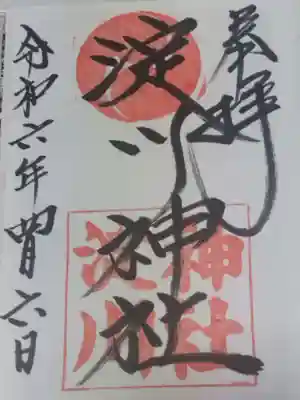 奉拝
淀川神社
淀川神社
令和六年四月六日